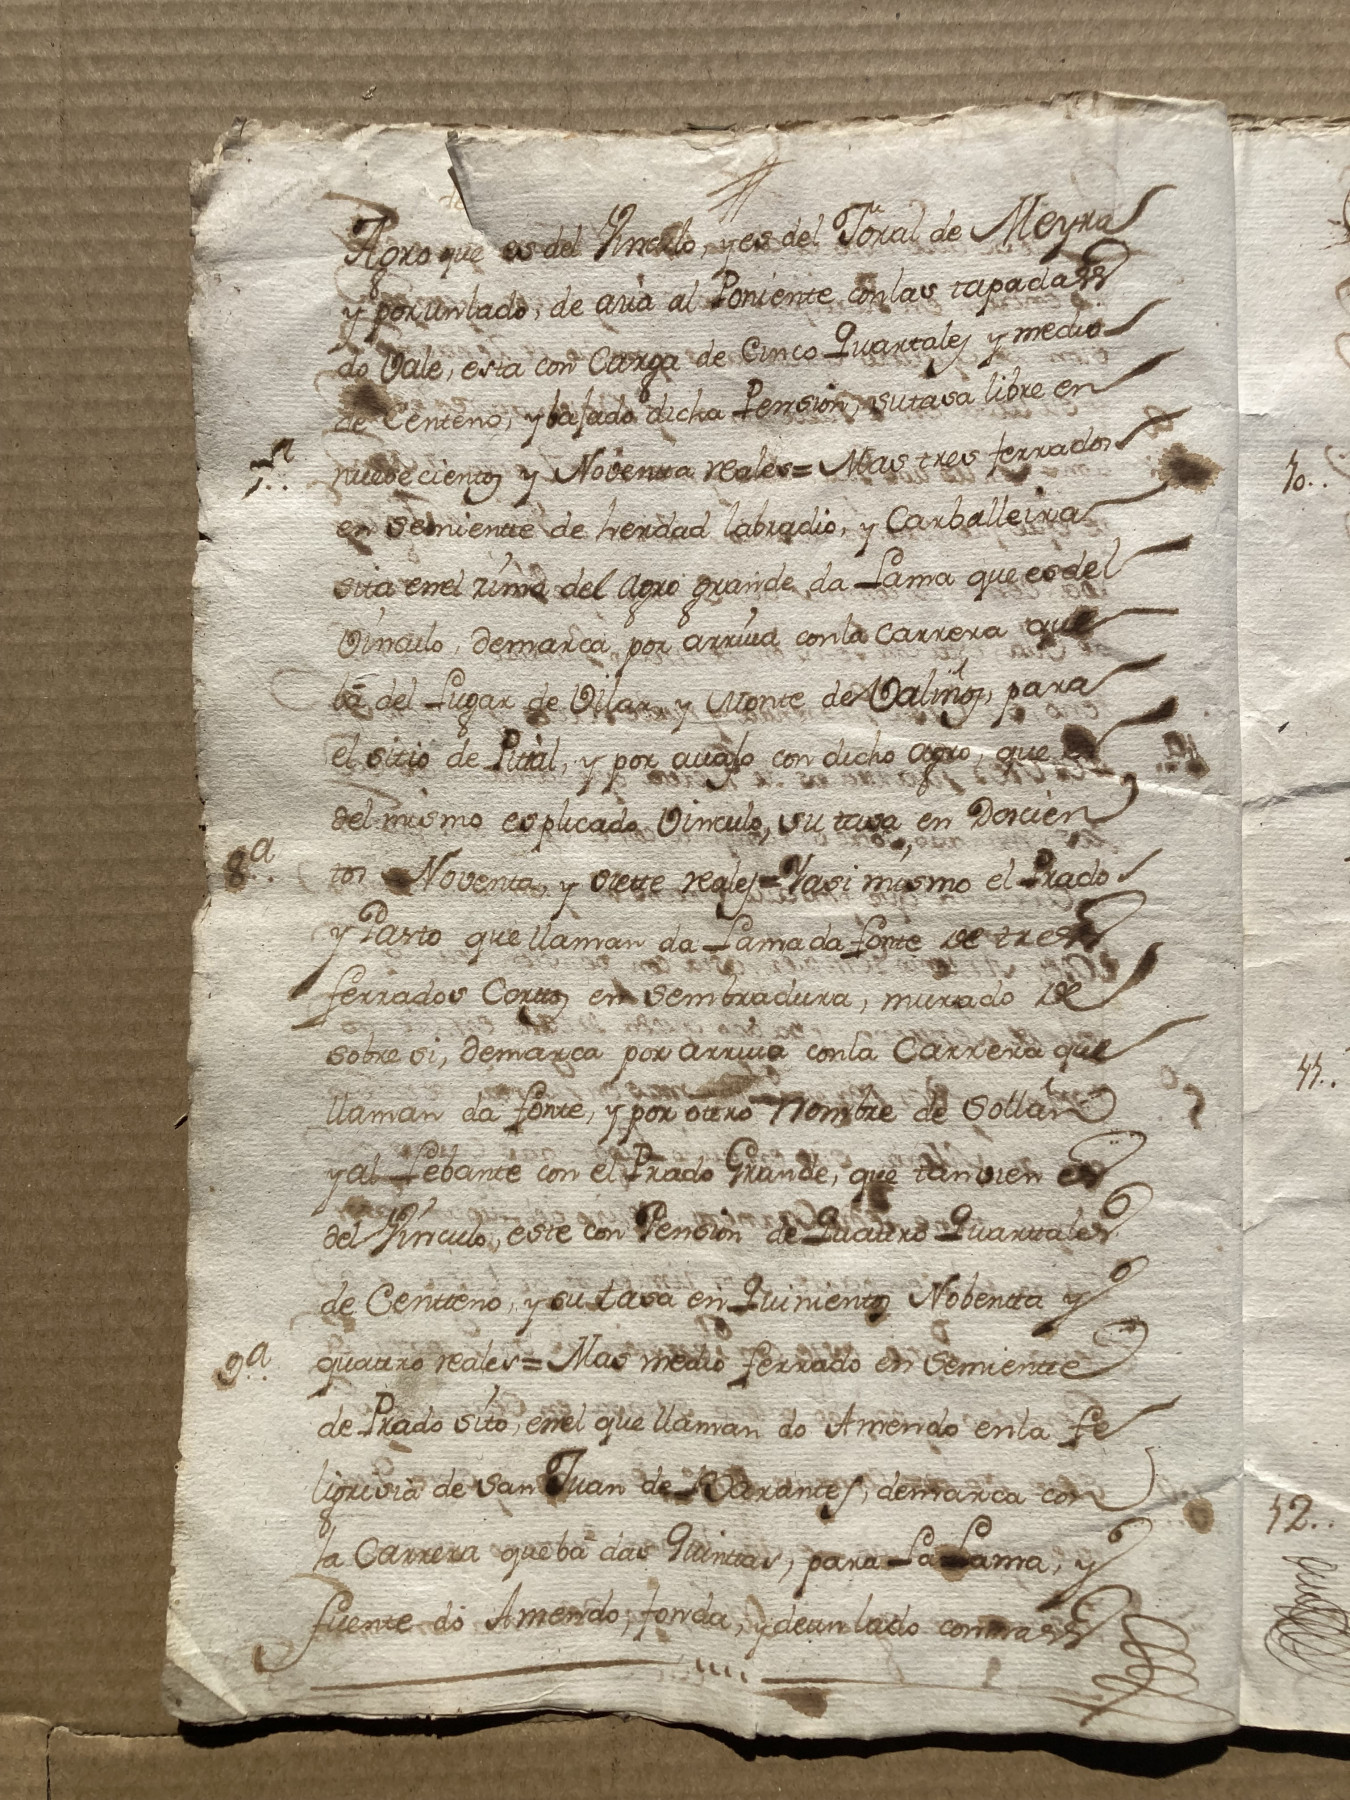 Agro que es del Vinculo, y es del Toral de Meyra
y por un lado, de avia al Poniente conlas tapadas
do Vale, esta con Carga de Cinco Quartales y medio
de Centeno, y bajado dicha Pension, sutasa libre en
7.ª
nuebecientos y Noventta reales = Mas tres ferrados
en semiente de herdad labradio, y Carballeira
sita enel sima del Agro grande da Lama que es del
Vinculo, demarca por arriva conla Carrera que
bá del Lugar de Vilar, y Monte de Valiños, para
el sitio de Pual, y por avajo con dicho agro, que es
del mismo esplicado Vinculo, su tasa, en Docien
8.ª
tos Noventa, y siette reales = Yasi mismo el Prado
y Pasto que llaman da Lama da fonte de tres
ferrados Cortos en sembradura, murado de
sobre si, demarca por arriva conla Carrera que
llaman da fonte, y por otro nombre de Sollan
y al Lebante con el Prado Grande, que tanvien es
del Vinculo, este con Pension de Quattro Quartales
de Centteno, y su tasa en Quinientos Nobentta y
9.ª
quattro reales = Mas medio ferrado en semientte
de Prado sito, enel que llaman do Amendo enla fe
ligrisia de San Juan de Barantes, demarca con
la Carrera que bá das Quintas, para La Lama, y
fuente do Amendo, fonda, y deun lado contra
10..
11..
12..